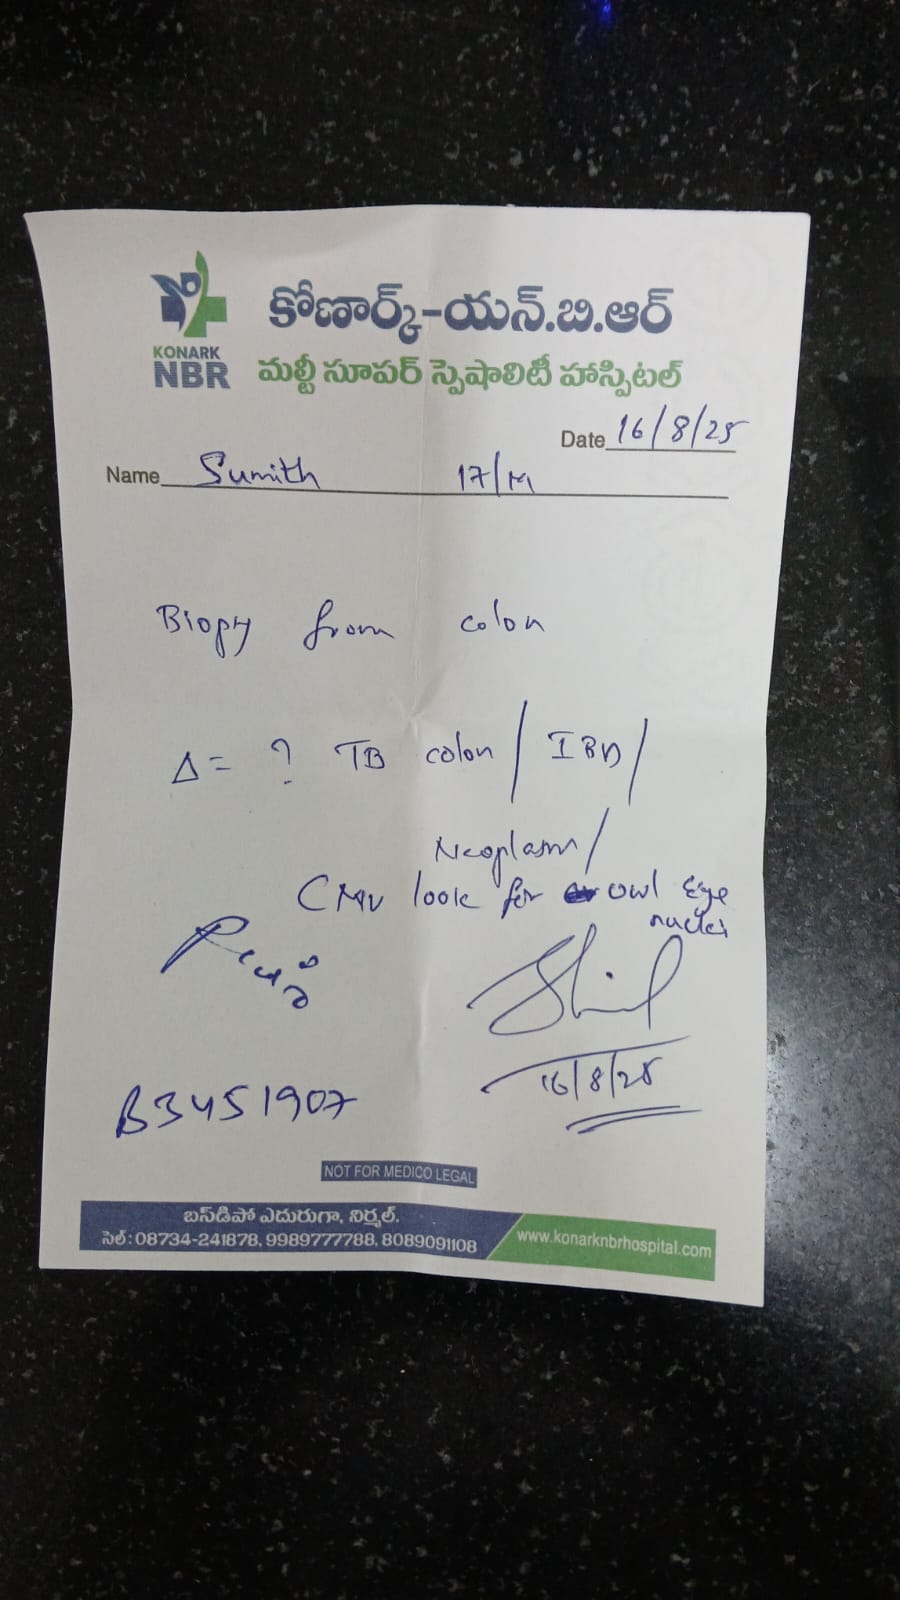 KONARK
NBR
కోణార్క్-యన్.బి.ఆర్
మల్టీ సూపర్ స్పెషాలిటీ హాస్పిటల్
Date 16/8/25
Name Sumith 17/M
Biopy from colon
Δ= ? TB colon / IBD /
Neoplasm /
CMV look for owl Eye
nuclei
16/8/25
B3451907
NOT FOR MEDICO LEGAL
బస్‌డిపో ఎదురుగా, నిర్మల్.
సెల్: 08734-241878, 9989777788, 8089091108
www.konarknbrhospital.com